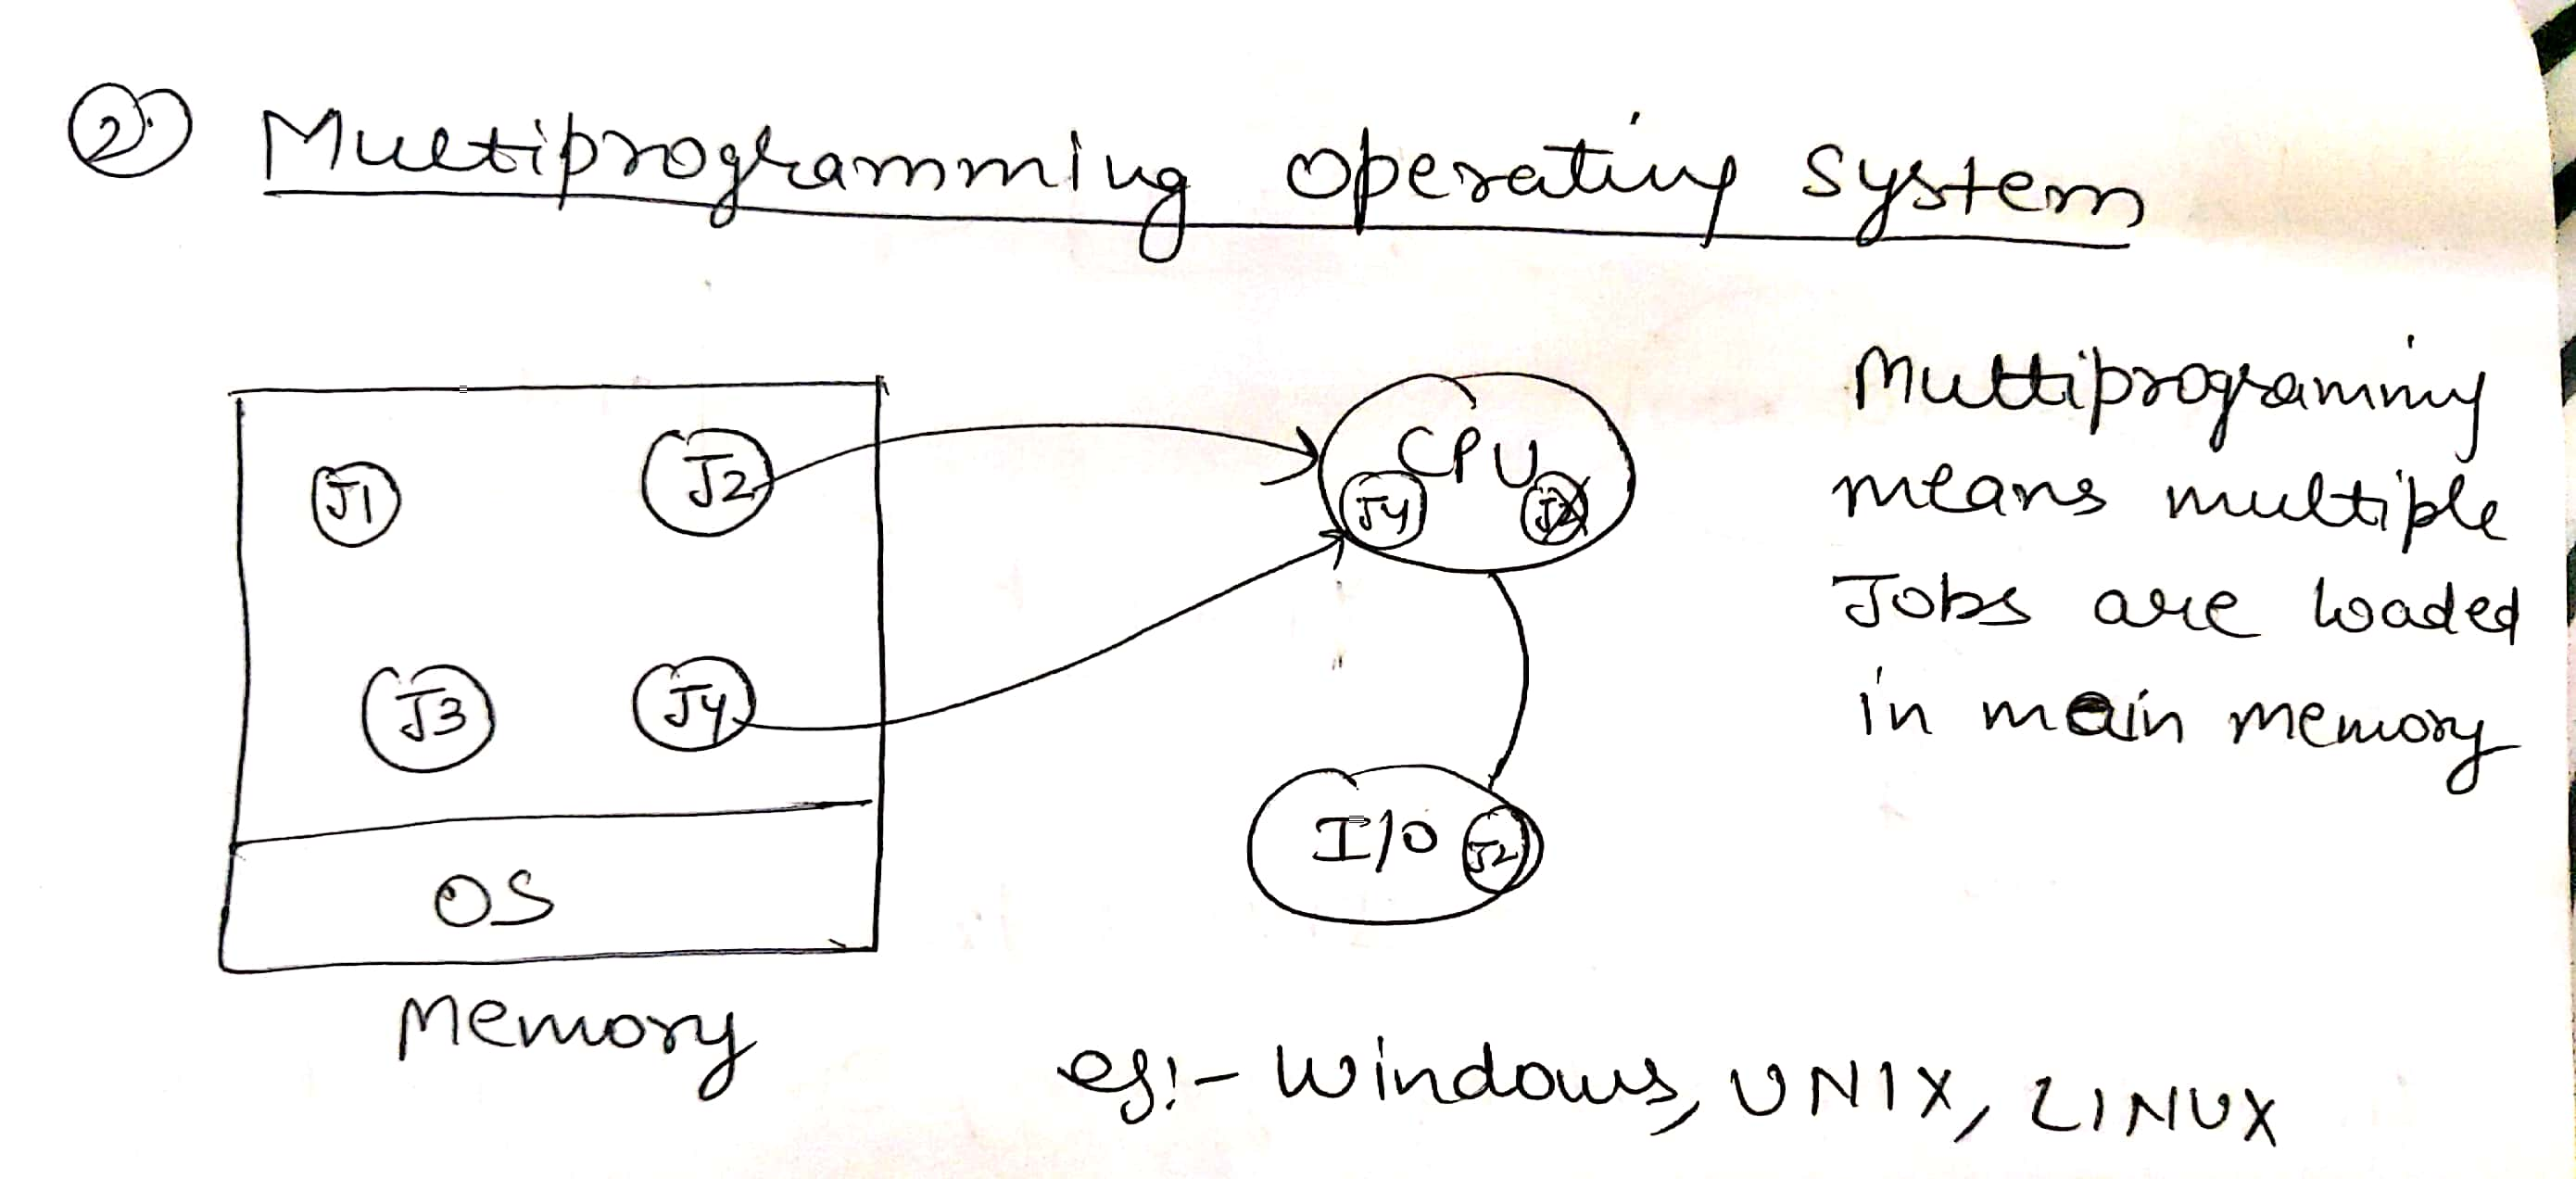 2. Multiprogramming operating system
J1 J2
J3 J4
OS
Memory
CPU
J4 J2
I/O J2
Multiprograming
means multiple
Jobs are loaded
in main memory
eg:- Windows, UNIX, LINUX